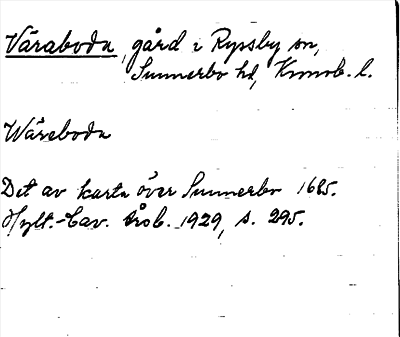 Våraboda, gård i Ryssby sn,
Sunnerbo hd, Kronob. l.
Wåreboda
Det av karta över Sunnerbo 1685.
Hylt.-Cav. årsb. 1929, s. 295.